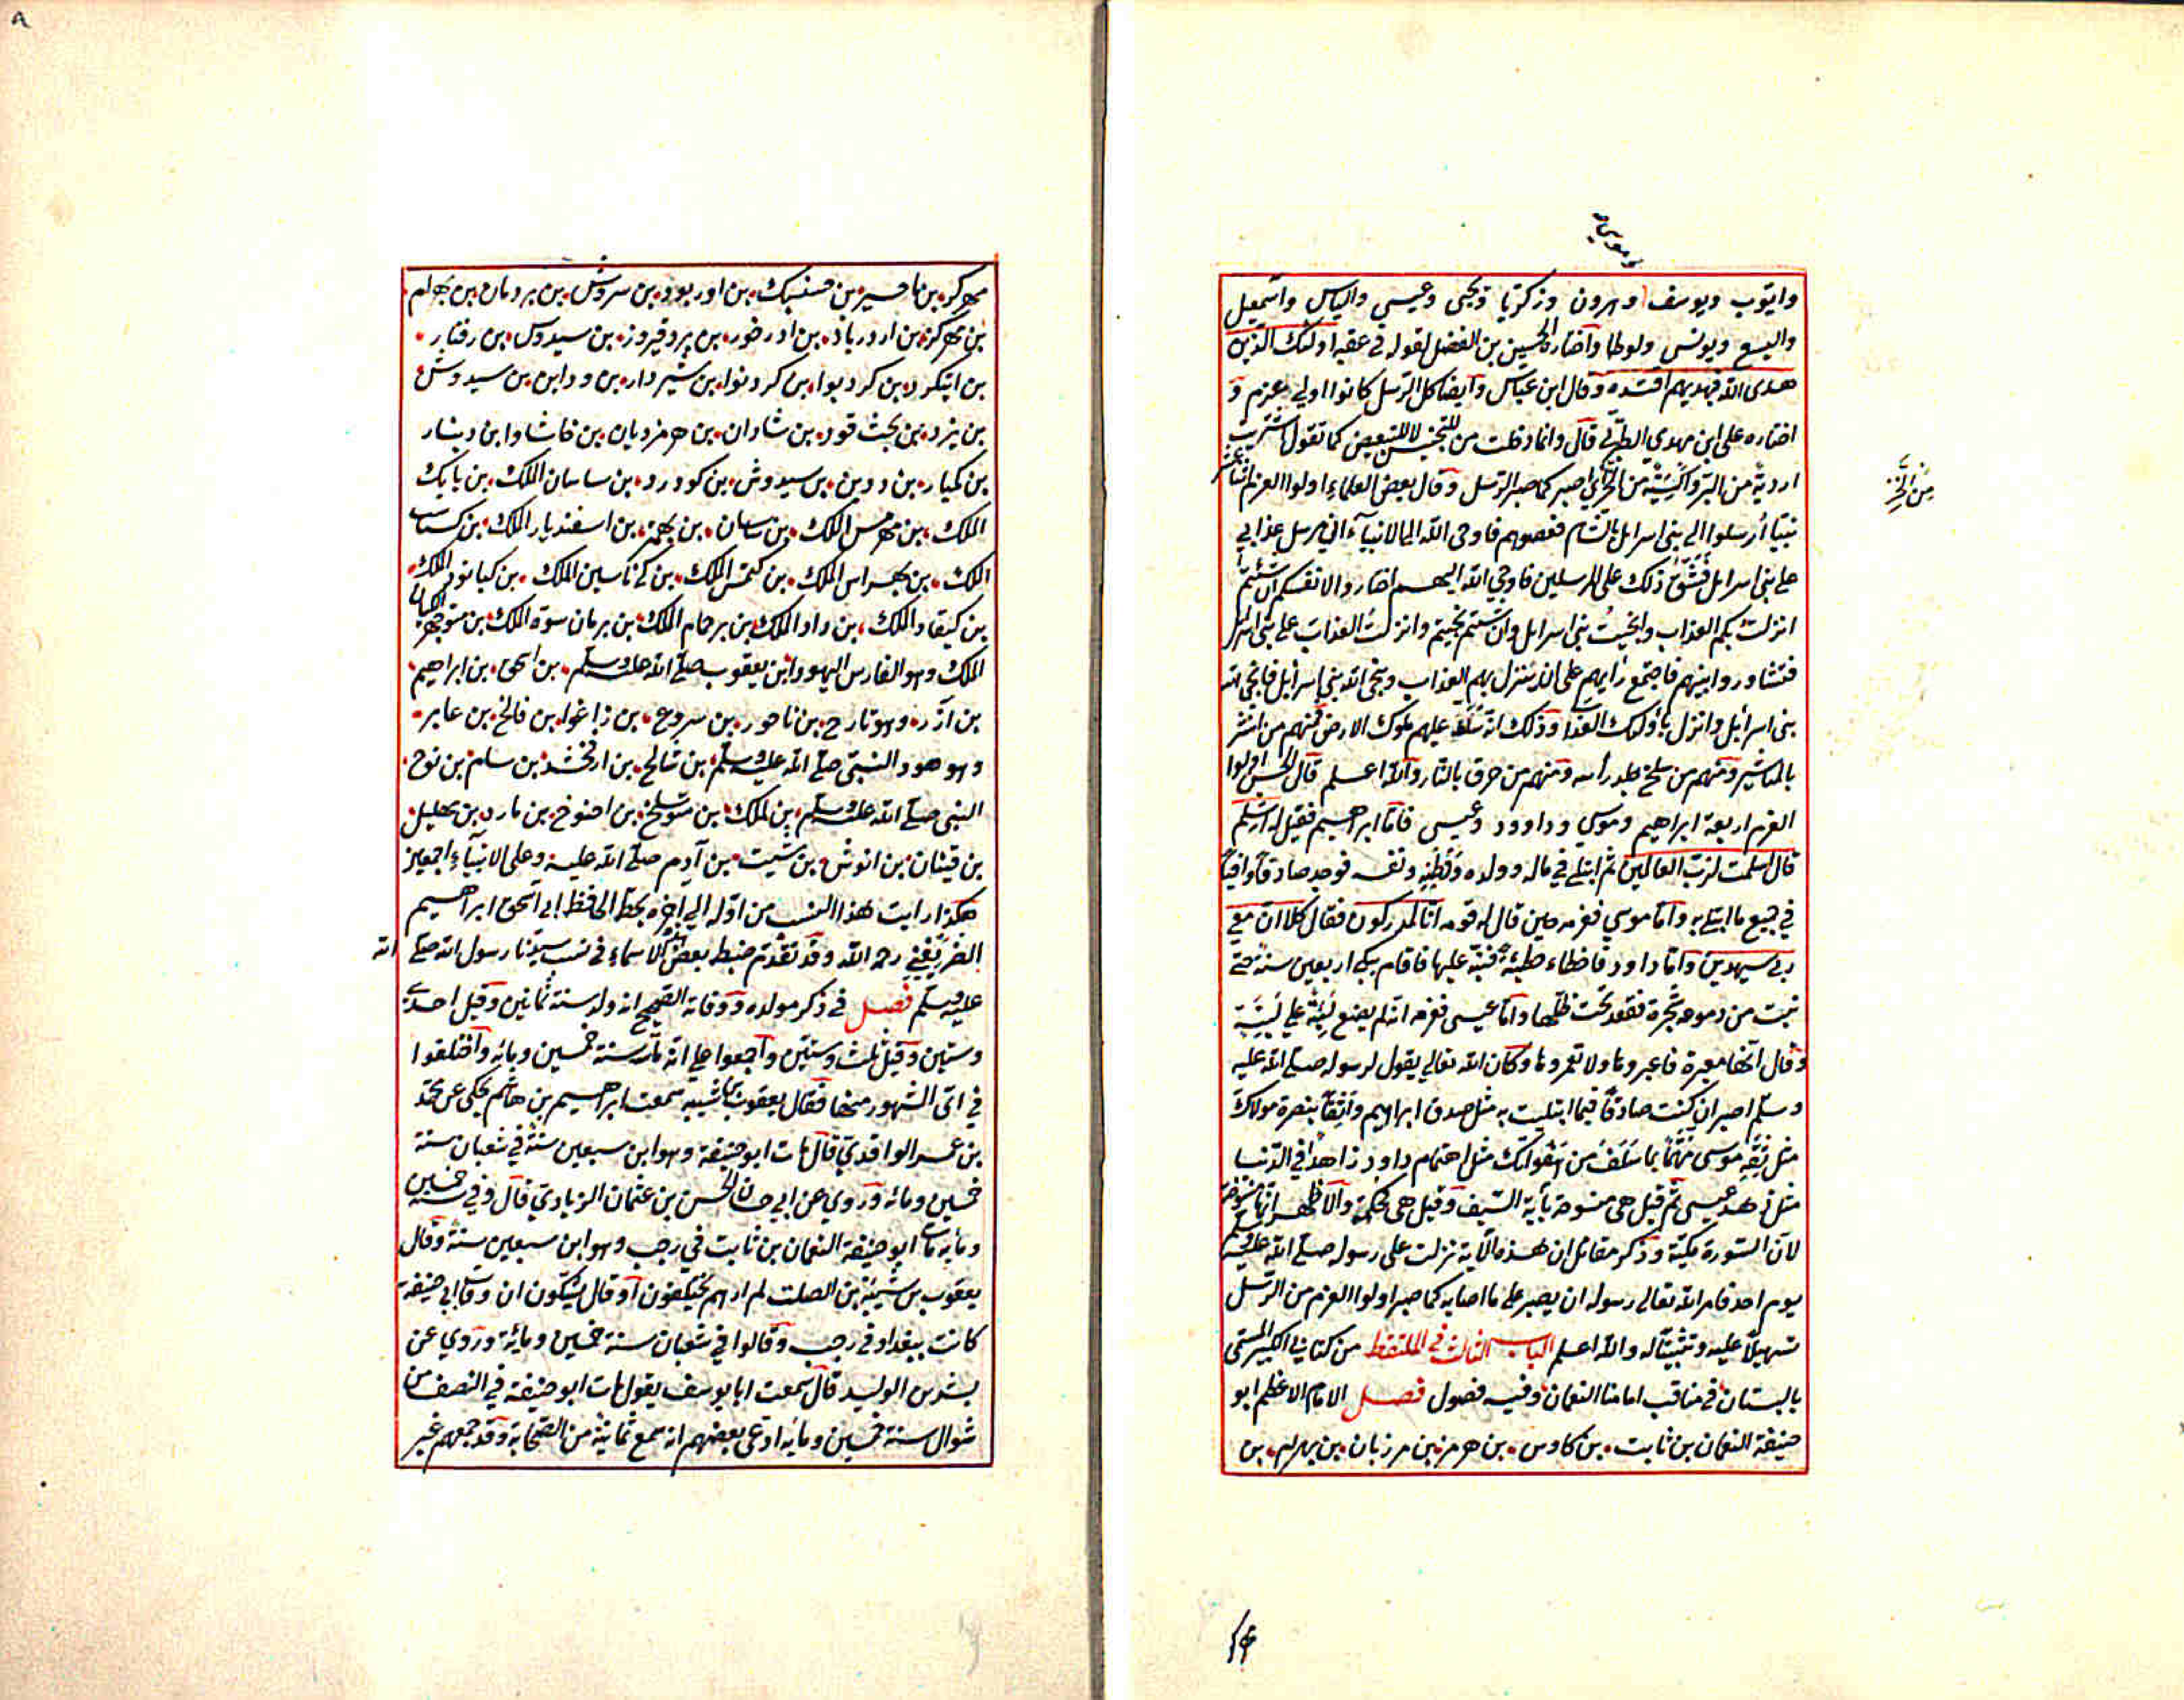 وموسى
وايّوب ويوسف وهرون وزكريّا ويحيى وعيسى والياس واسمعيل
واليسع ويونس ولوطا واختاره الحسين بن الفضل لقوله في عقبه اولئك الذين
هدى الله فبهديهم اقتده وقال ابن عباس وايضا كل الرسل كانوا اولي عزم و
اختاره علي ابن مهدي الطبري قال وانما دخلت من للتجنيس لا للتبعيض كما تقول اشتريت
اردية من البز واكسية من الخز اي اصبر كما صبر الرسل وقال بعض العلماء اولوا العزم اثنا عشر
من الخز
نبيّا أرسلوا الى بني اسرايل بالشام فعصوهم فاوحى الله الى الانبياء اني مرسل عذابي
على بني اسرايل فشق ذلك على المرسلين فاوحى الله اليهم اختاروا لانفسكم ان شئتم
انزلت بكم العذاب وانجيت بني اسرايل وان شئتم نجيتم وانزلت العذاب على بني اسرايل
فتشاوروا بينهم فاجتمع رايهم على ان ينزل بهم العذاب وينجي الله بني اسرايل فانجى الله
بني اسرايل وانزل باولئك العذاب وذلك انه سلط عليهم ملوك الارض فمنهم من نشر
بالمناشير ومنهم من سلخ جلد رأسه ومنهم من حرق بالنار والله اعلم قال الحسن اولوا
العزم اربعة ابراهيم وموسى وداوود وعيسى فاما ابراهيم فقيل له اسلم
قال اسلمت لرب العالمين ثم ابتلي في ماله وولده ووطنه ونفسه فوجد صادقا وافيا
في جميع ما ابتلي به واما موسى فعزمه حين قال له قومه انا لمدركون فقال كلا ان معي
ربي سيهدين واما داود فاخطاء خطيئة فنبه عليها فاقام يبكي اربعين سنة حتى
نبتت من دموعه شجرة فقعد تحت ظلها واما عيسى فعزمه انه لم يضع لبنة على لبنة
وقال انها معبرة فاعبروها ولا تعمروها وكان الله تعالى يقول لرسوله صلى الله عليه
وسلم اصبر ان كنت صادقا فيما ابتليت به مثل صدق ابراهيم واثقا بنصرة مولاك
مثل ثقة موسى مهتما بما سلف من هفواتك مثل اهتمام داود زاهدا في الدنيا
مثل زهد عيسى ثم قيل هي منسوخة بآية السيف وقيل هي محكمة والاظهر انها منسوخة
لان السورة مكية وذكر مقاتل ان هذه الآية نزلت على رسوله صلى الله عليه وسلم
يوم احد فامر الله تعالى رسوله ان يصبر على ما اصابه كما صبر اولوا العزم من الرسل
تسهيلا عليه وتثبيتا له والله اعلم الباب الثالث في الملتقط من كتابي الكبير المسمى
بالبستان في مناقب امامنا النعمان وفيه فصول فصل الامام الاعظم ابو
حنيفة النعمان بن ثابت بن كاوس بن هرمز بن مرزبان بن بهرام بن
٨
مهركز بن ماحسير بن حسنبك بن اوربود بن سروش بن بردمان بن بهرام
بن مهركز بن اردرباد بن ادرخور بن بروفيروز بن سيدوس بن رفتار
بن ايتكرد بن كردبوا بن كردنوا بن شيردار بن ودابن بن سيدوش
بن يزد بن بخت قود بن شادان بن هرمزديان بن خاشا وابن دينار
بن كميار بن ددين بن سيدوش بن كودرد بن ساسان الملك بن بابك
الملك بن مهرمس الملك بن ساسان بن بهمن بن اسفنديار الملك بن كستاسب
الملك بن بهراس الملك بن كيمس الملك بن كي ناسين الملك بن كيانود الملك
بن كيقاد الملك بن داد الملك بن برحمام الملك بن برمان سوة الملك بن منوجهر
الملك وهو الفارس اليهودا بن يعقوب صلى الله عليه وسلم بن اسحق بن ابراهيم
بن ازر وهو تارح بن ناحور بن سروع بن زاغوا بن فالخ بن عابر
وهو هود النبي صلى الله عليه وسلم بن شالخ بن ارفخشد بن سام بن نوح
النبي صلى الله عليه وسلم بن لمك بن متوشلخ بن اخنوخ بن مارد بن مهليل
بن قينان بن انوش بن شيت بن آدم صلى الله عليه وعلى الانبياء اجمعين
هكذا رايت هذا النسب من اوله الى اخره بخط الحافظ ابي اسحق ابراهيم
الصريفيني رحمه الله وقد تقدم ضبط بعض الاسماء في نسب سيدنا رسول الله صلى الله
عليه وسلم فصل في ذكر مولده ووفاته الصحيح انه ولد سنة ثمانين وقيل احدى
وستين وقيل ثلث وستين واجمعوا على انه مات سنة خمسين ومائه واختلفوا
في اي الشهور منها فقال يعقوب بن شيبه سمعت ابراهيم بن هاشم يحكي عن محمد
بن عمر الواقدي قال مات ابو حنيفة وهو ابن سبعين سنة في شعبان سنة
خمسين ومائه وروي عن ابي حسان الحسن بن عثمان الزيادي قال وفي سنة خمسين
ومايه مات ابو حنيفة النعمان بن ثابت في رجب وهو ابن سبعين سنة وقال
يعقوب بن شيبة بن الصلت لم ارهم يختلفون او قال يشكون ان وفاة ابي حنيفة
كانت ببغداد في رجب وقالوا في شعبان سنة خمسين ومائة وروي عن
بشر بن الوليد قال سمعت ابا يوسف يقول مات ابو حنيفة في النصف من
شوال سنة خمسين ومايه ادعى بعضهم انه سمع ثمانية من الصحابة وقد جمعهم غير